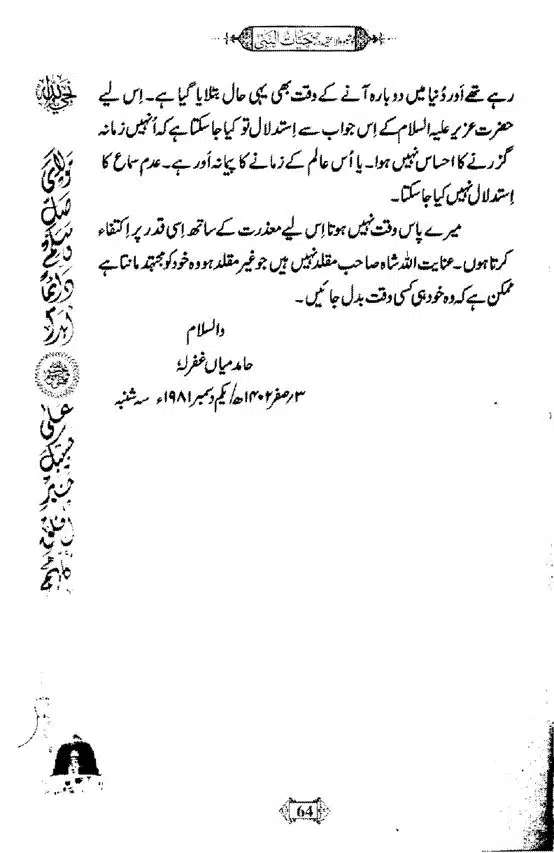 حیات النبی
رہے تھے اور دُنیا میں دوبارہ آنے کے وقت بھی یہی حال بتلایا گیا ہے۔ اِس لیے
حضرت عزیر علیہ السلام کے اِس جواب سے اِستدلال تو کیا جا سکتا ہے کہ اُنہیں زمانہ
گزرنے کا احساس نہیں ہوا۔ یا اُس عالم کے زمانے کا پیمانہ اور ہے۔ عدمِ سماع کا
اِستدلال نہیں کیا جا سکتا۔
میرے پاس وقت نہیں ہوتا اِس لیے معذرت کے ساتھ اِسی قدر پر اِکتفاء
کرتا ہوں۔ عنایت اللہ شاہ صاحب مقلد نہیں ہیں جو غیر مقلد ہو وہ خود کو مجتہد مانتا ہے
ممکن ہے کہ وہ خود ہی کسی وقت بدل جائیں۔
والسلام
حامد میاں غفرلہٗ
۳؍صفر ۱۴۰۲ھ/یکم دسمبر ۱۹۸۱ء سہ شنبہ
مولای
صل
وسلم
دائما
ابدا
علی
حبیبک
خیر
الخلق
کلہم
64